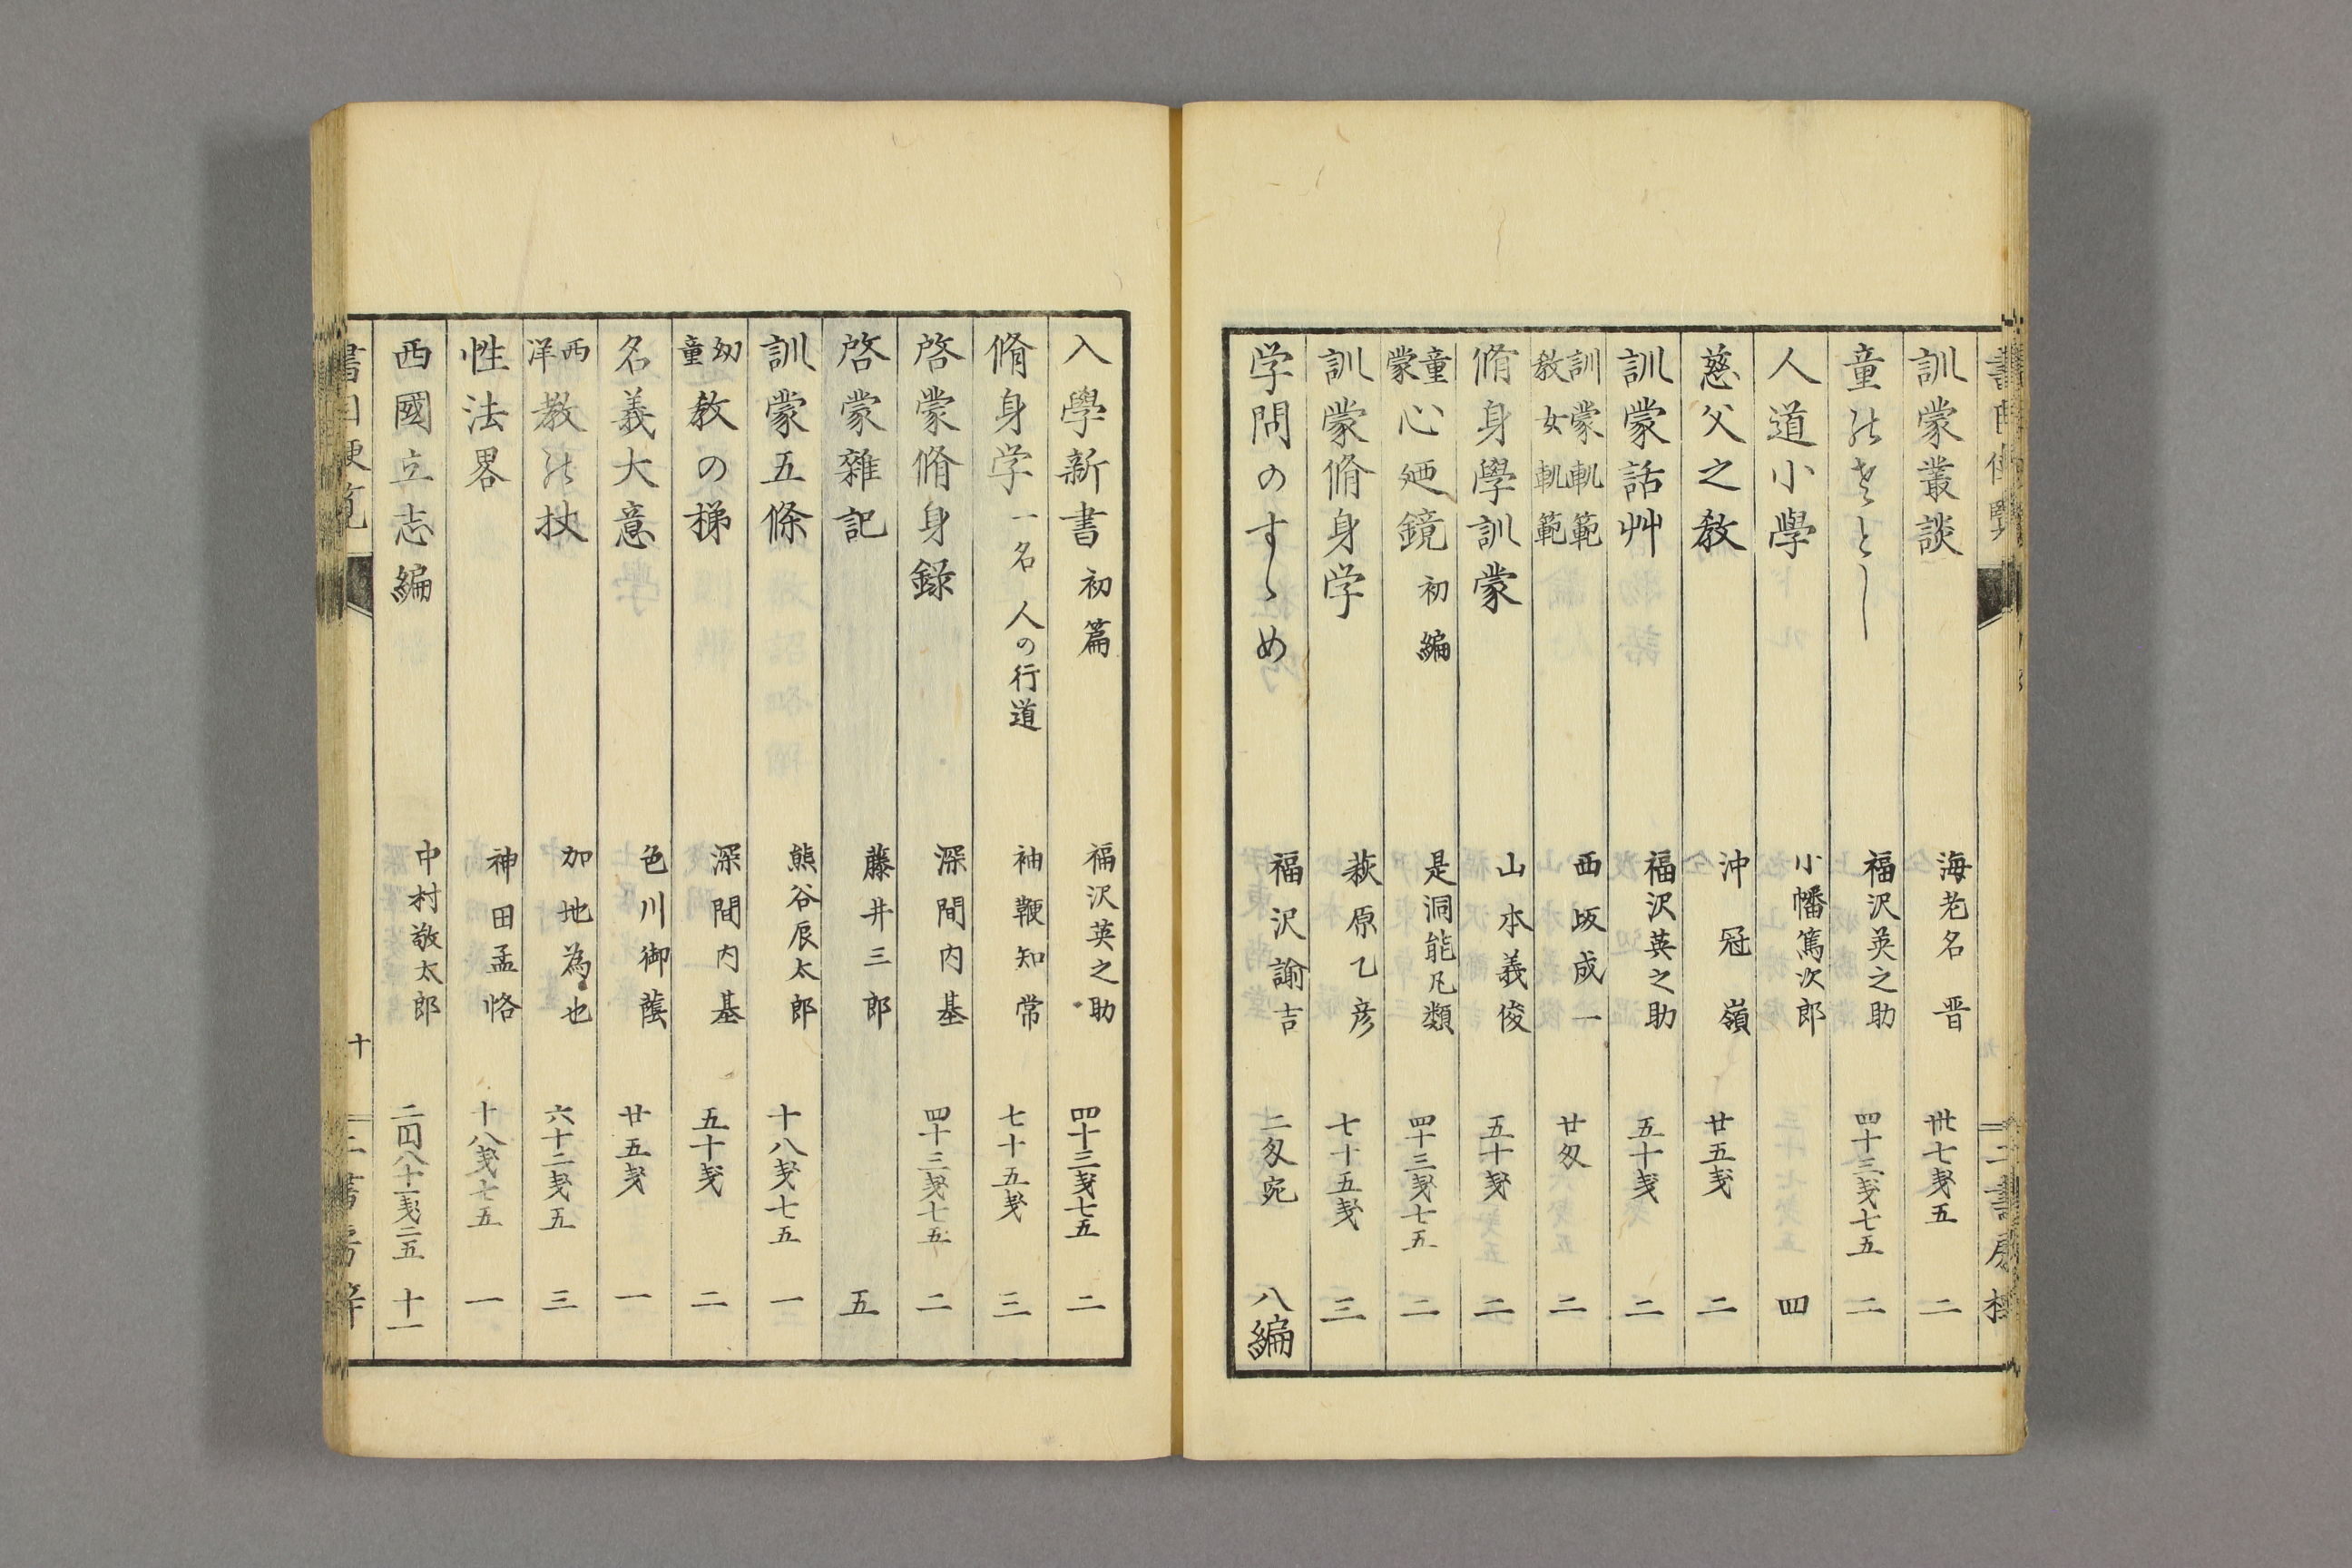 訓蒙叢談 海老名晋 卅七戔五 二
童のをとし 福沢英之助 四十三戔七五 二
人道小學 小幡篤次郎 四
慈父之教 沖冠嶺 廿五戔 二
訓蒙話艸 福沢英之助 五十戔 二
訓蒙軌範 教女軌範 西坂成一 廿匁 二
脩身學訓蒙 山本義俊 五十戔 二
童蒙心廼鏡 初編 是洞能凡類 四十三戔七五 二
訓蒙脩身学 萩原乙彦 七十五戔 三
学問のすゝめ 福沢諭吉 二匁宛 八編
入學新書 初篇 福沢英之助 四十三戔七五 二
脩身学 一名 人の行道 袖鞭知常 七十五戔 三
啓蒙脩身録 深間内基 四十三戔七五 二
啓蒙雜記 藤井三郎 五
訓蒙五條 熊谷辰太郎 十八戔七五 一
幼童教の梯 深間内基 五十戔 二
名義大意 色川御蔭 廿五戔 一
西洋教の杖 加地為也 六十二戔五 三
性法畧 神田孟恪 十八戔七五 一
西國立志編 中村敬太郎 二円八十一戔二五 十一
十